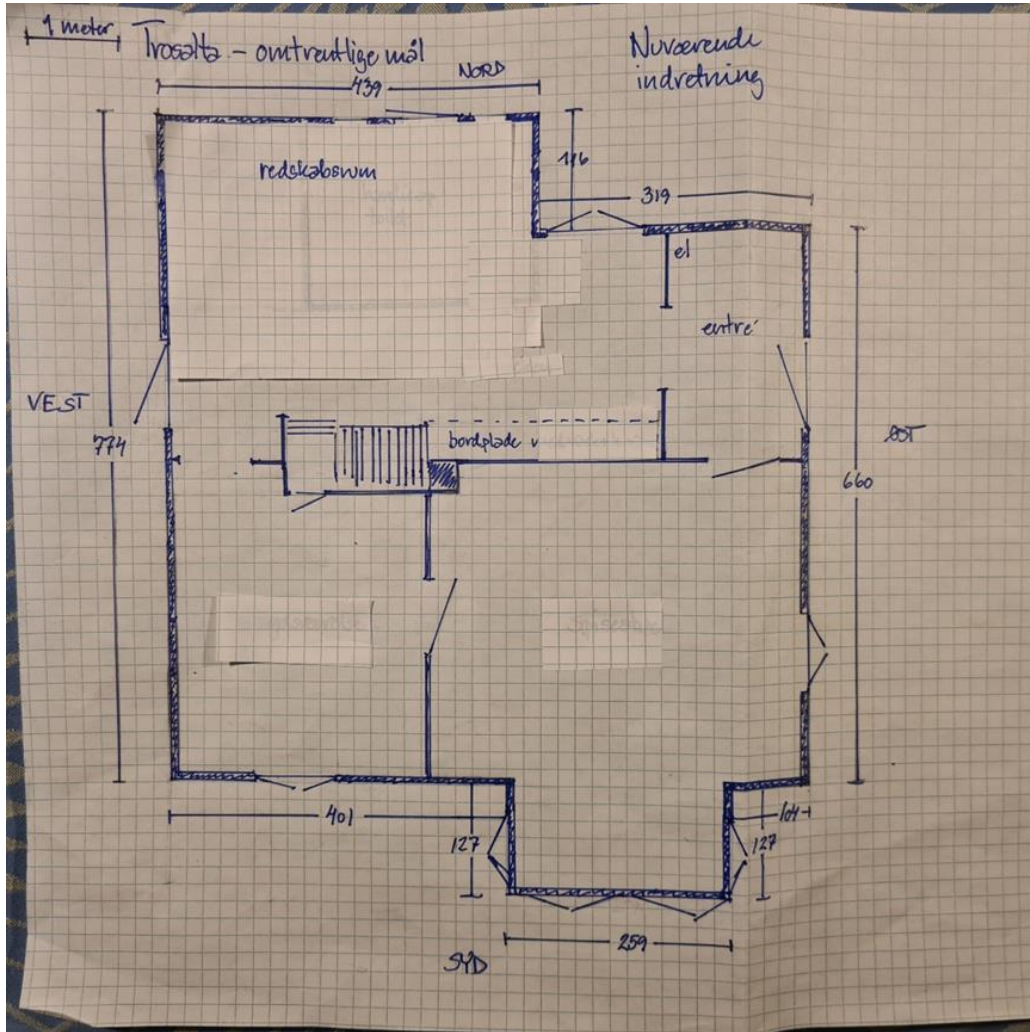 1 meter
Trosalta - omtrentlige mål
Nuværende
indretning
NORD
439
redskabsrum
116
319
el
entré
VEST
774
bordplade v
ØST
660
401
127
104
127
259
SYD